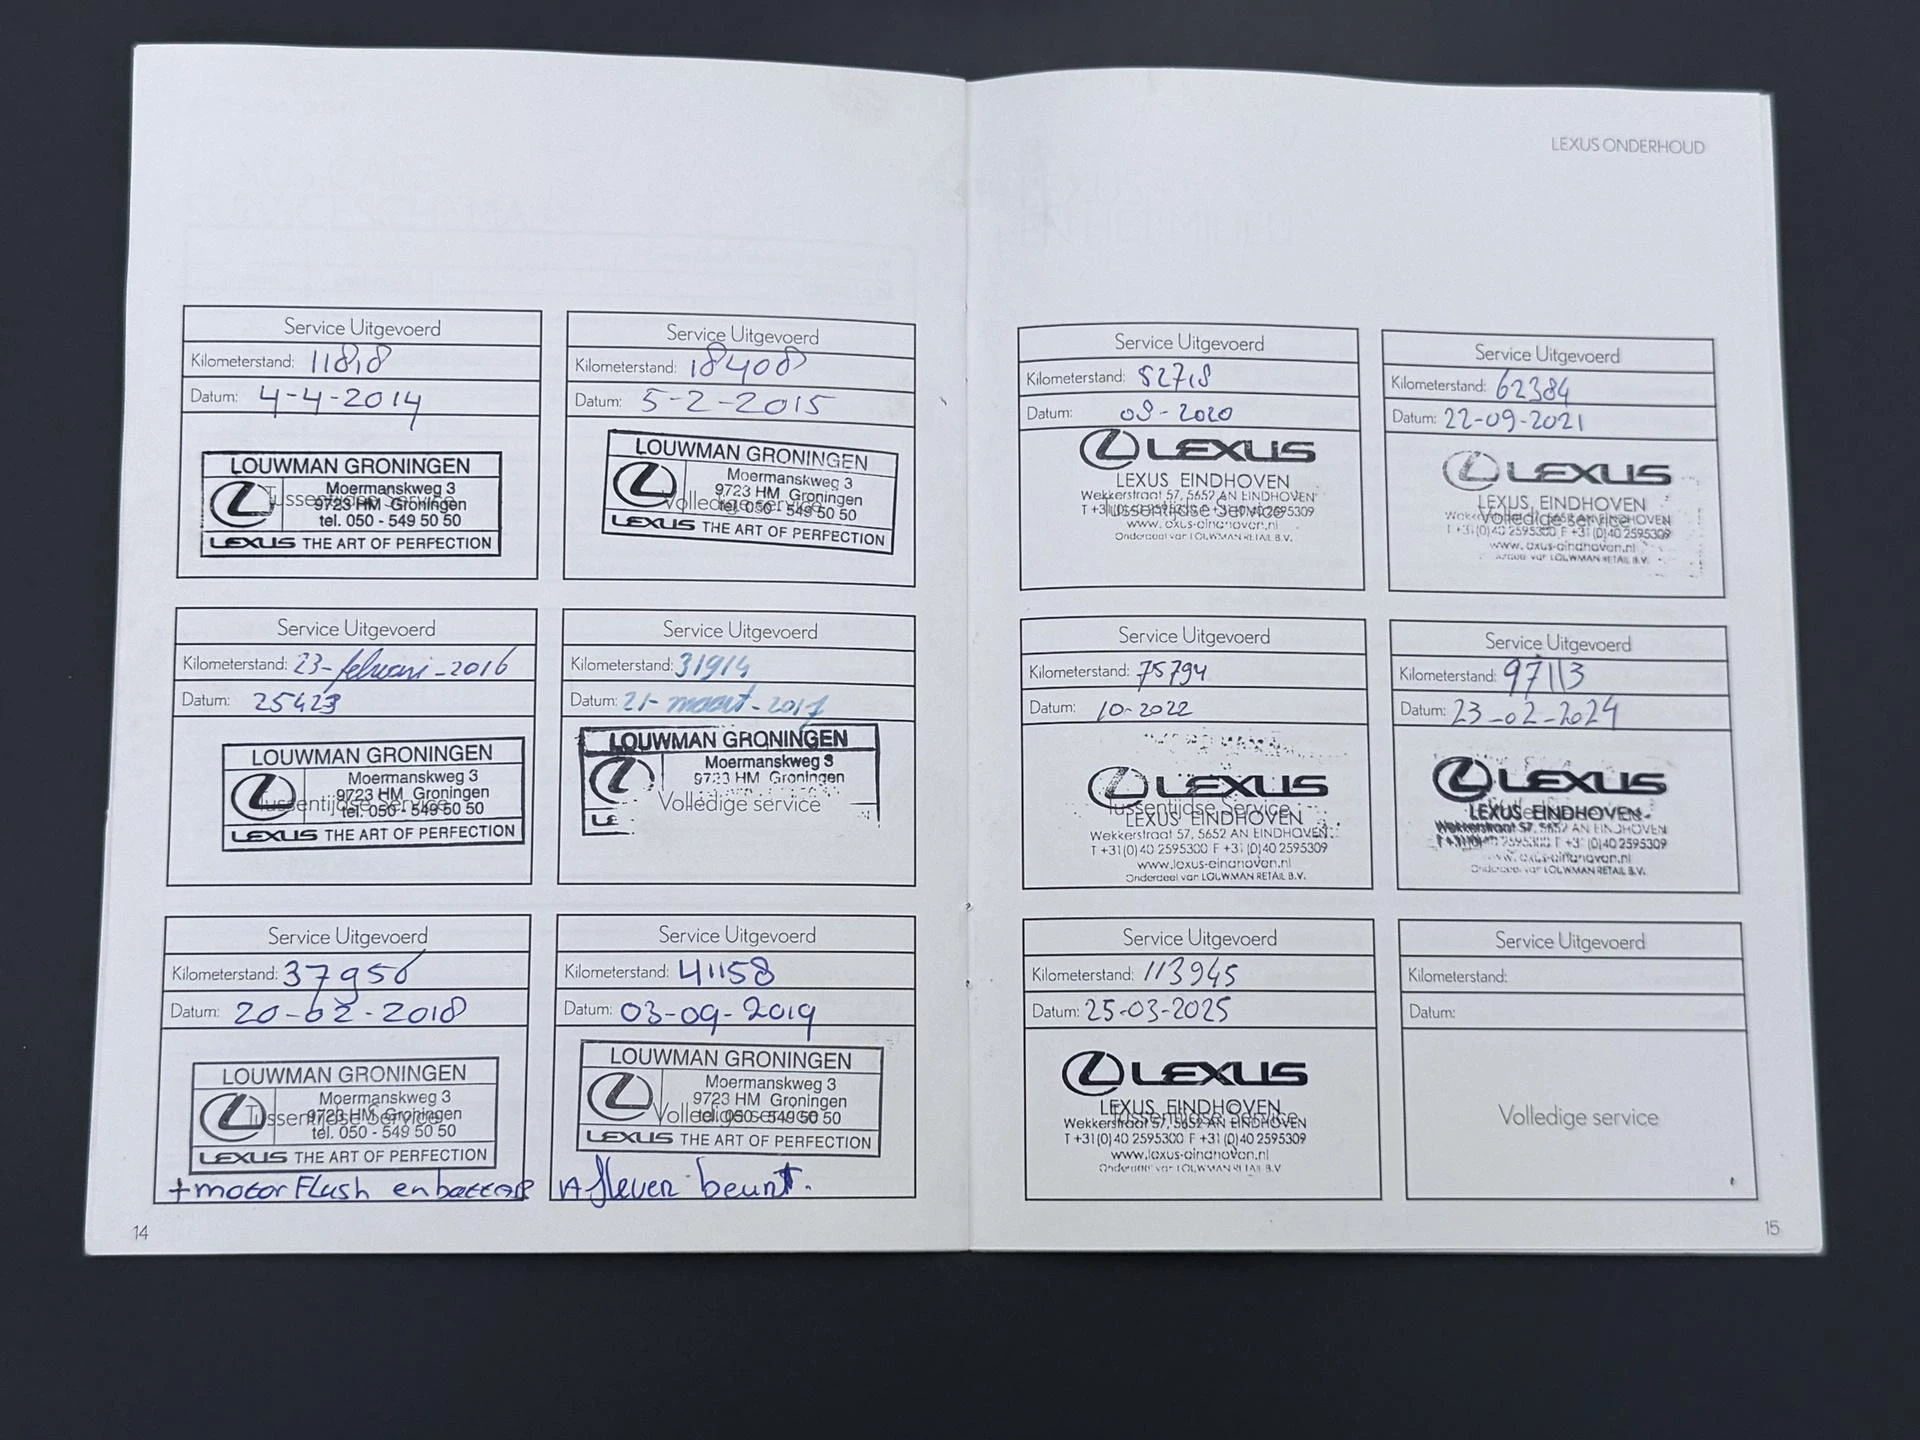 LEXUS ONDERHOUD
Service Uitgevoerd
Kilometerstand: 11818
Datum: 4-4-2014
LOUWMAN GRONINGEN
Moermanskweg 3
9723 HM Groningen
Tussentijdse Service
tel. 050 - 549 50 50
LEXUS THE ART OF PERFECTION
Service Uitgevoerd
Kilometerstand: 18408
Datum: 5-2-2015
LOUWMAN GRONINGEN
Moermanskweg 3
9723 HM Groningen
Volledige service
tel. 050 - 549 50 50
LEXUS THE ART OF PERFECTION
Service Uitgevoerd
Kilometerstand: 23-februari-2016
Datum: 25423
LOUWMAN GRONINGEN
Moermanskweg 3
9723 HM Groningen
Tussentijdse Service
tel. 050 - 549 50 50
LEXUS THE ART OF PERFECTION
Service Uitgevoerd
Kilometerstand: 31914
Datum: 21-maart-2017
LOUWMAN GRONINGEN
Moermanskweg 3
9723 HM Groningen
Volledige service
LE
Service Uitgevoerd
Kilometerstand: 37956
Datum: 20-02-2018
LOUWMAN GRONINGEN
Moermanskweg 3
9723 HM Groningen
Tussentijdse Service
tel. 050 - 549 50 50
LEXUS THE ART OF PERFECTION
+motor Flush en
Service Uitgevoerd
Kilometerstand: 41158
Datum: 03-09-2019
LOUWMAN GRONINGEN
Moermanskweg 3
9723 HM Groningen
Volledige service
tel. 050 - 549 50 50
LEXUS THE ART OF PERFECTION
Aflever beurt.
14
Service Uitgevoerd
Kilometerstand: 52718
Datum: 09-2020
LEXUS
LEXUS EINDHOVEN
Wekkerstraat 57, 5652 AN EINDHOVEN
Tussentijdse Service
T +31(0)40 2595300 F +31(0)40 2595309
www.lexus-eindhoven.nl
Onderdeel van LOUWMAN RETAIL B.V.
Service Uitgevoerd
Kilometerstand: 62384
Datum: 22-09-2021
LEXUS
LEXUS EINDHOVEN
Wekkerstraat 57, 5652 AN EINDHOVEN
Volledige service
T +31(0)40 2595300 F +31(0)40 2595309
www.lexus-eindhoven.nl
Onderdeel van LOUWMAN RETAIL B.V.
Service Uitgevoerd
Kilometerstand: 75794
Datum: 10-2022
LEXUS
Tussentijdse Service
LEXUS EINDHOVEN
Wekkerstraat 57, 5652 AN EINDHOVEN
T +31(0)40 2595300 F +31(0)40 2595309
www.lexus-eindhoven.nl
Onderdeel van LOUWMAN RETAIL B.V.
Service Uitgevoerd
Kilometerstand: 97113
Datum: 23-02-2024
LEXUS
LEXUS EINDHOVEN
Wekkerstraat 57, 5652 AN EINDHOVEN
T +31(0)40 2595300 F +31(0)40 2595309
www.lexus-eindhoven.nl
Onderdeel van LOUWMAN RETAIL B.V.
Service Uitgevoerd
Kilometerstand: 113945
Datum: 25-03-2025
LEXUS
LEXUS EINDHOVEN
Tussentijdse Service
Wekkerstraat 57, 5652 AN EINDHOVEN
T +31(0)40 2595300 F +31(0)40 2595309
www.lexus-eindhoven.nl
Onderdeel van LOUWMAN RETAIL B.V.
Service Uitgevoerd
Kilometerstand:
Datum:
Volledige service
15